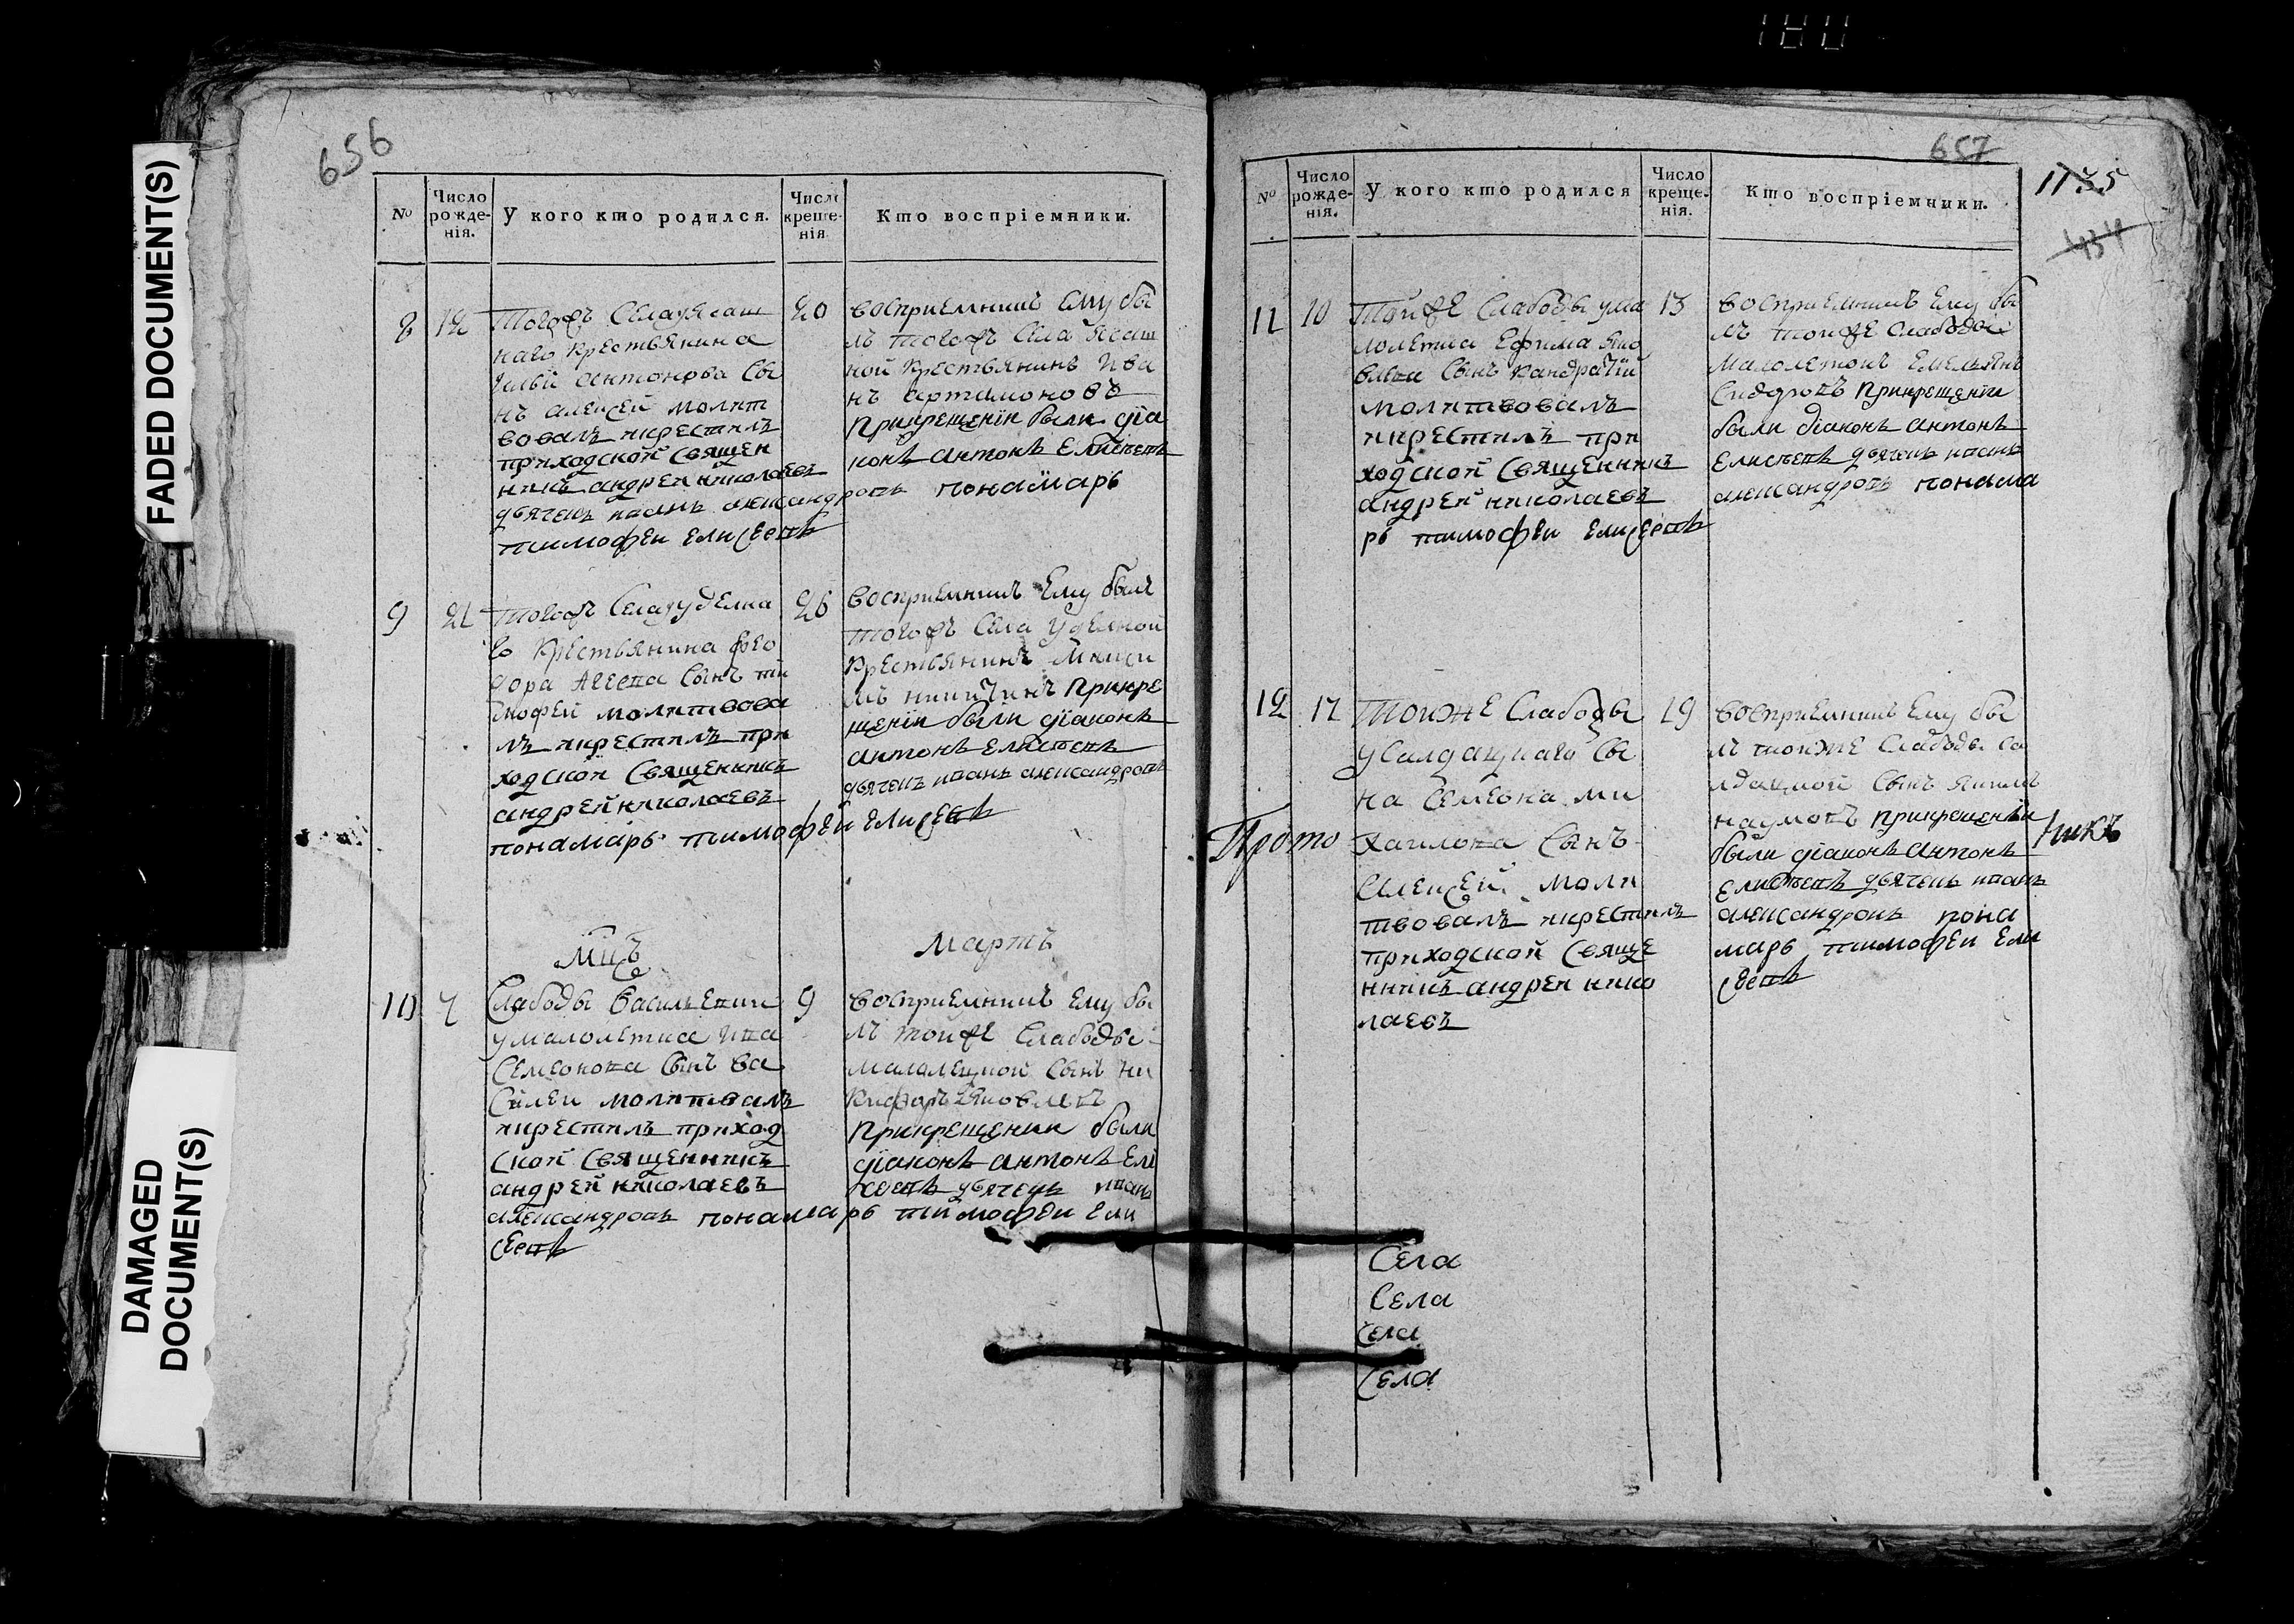 180
FADED DOCUMENT(S)
DAMAGED DOCUMENT(S)
656
№ Число рожденія. У кого кто родился. Число крещенія Кто воспріемники.
8 12 Тогожъ Села уясаш 20
наго крестьянина
Антонова Сы
нъ алеѯей молит
вовалъ икрестилъ
приходской Священ
никъ андрей николаевъ
дьячекъ иванъ александровъ понамарь
тимофеи елисеевъ
восприемникъ ему бы
лъ тогожъ Села Ясаш
ной крестьянинъ Ива
нъ артамоновъ
прикрещенїи были дїа
конъ антонъ елисеевъ
9 21 Тогожъ Села уудѣлна 26
го крестьянина фео
дора Агеева Сынъ ти
мофей молитвова
лъ икрестилъ при
ходской Священникъ
андрей николаевъ
понамарь тимофей елисеевъ
восприемникъ Ему былъ
тогожъ Села удѣлной
крестьянинъ
прикре
щенїи были дїаконъ
антонъ елисеевъ
дьячекъ иванъ александровъ
Мцъ Мартъ
10 7 Слабоды Васильевки 9
умалолетка Ива
Семеонова Сынъ Ва
Силеи молитвалъ
икрестилъ приход
ской Священникъ
андрей николаевъ
александровъ понамарь тимофеи ели
сеевъ
восприемникъ ему бы
лъ тойже Слабоды
малалецкой Сынъ Ни
кифоръ Яковлевъ
прикрещении были
дїаконъ антонъ ели
сеевъ дьячекъ иванъ
657
1135
434
№ Число рожденія. У кого кто родился Число крещенія. Кто воспріемники.
11 10 Тойже Слабоды ума 13
лолетка Ефима Яко
влева Сынъ Кандратїй
молитвовалъ
икрестилъ при
ходской Священникъ
андрей николаевъ
рь тимофеи елисеевъ
восприемникъ Ему бы
лъ тойже Слабоды
малолетокъ Емельянъ
Сидоровъ прикрещенїи
были дїаконъ антонъ
елисеевъ дьячекъ иванъ
александровъ понама
12 17 Тоиже Слабоды 19
у Салдацкаго Сы
на Семеона ми
хаилова Сынъ
алеѯей моли
твовалъ икрестилъ
приходской Свяще
нникъ андреи нико
лаевъ
восприемникъ Ему бы
лъ тоиже Слабоды Са
лдацкой Сынъ
наумовъ прикрещенїи
были дїаконъ антонъ
елисеевъ дьячекъ иванъ
александровъ пона
марь тимофеи ели
сеевъ
Прото
Села
Села
Села
Села